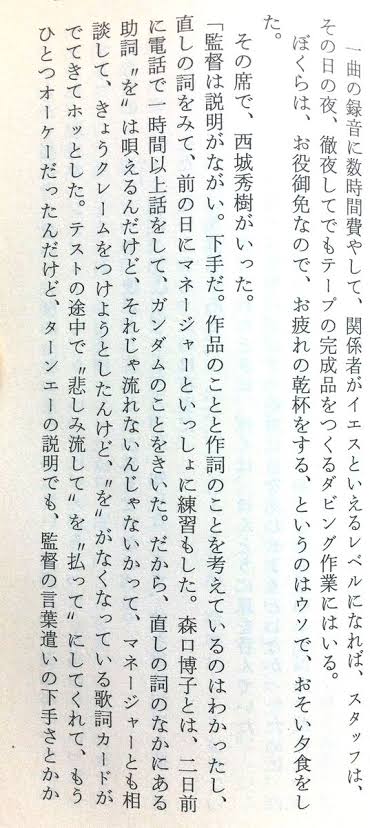 一曲の録音に数時間費やして、関係者がイエスといえるレベルになれば、スタッフは、
その日の夜、徹夜してでもテープの完成品をつくるダビング作業にはいる。
ぼくらは、お役御免なので、お疲れの乾杯をする、というのはウソで、おそい夕食をし
た。
その席で、西城秀樹がいった。
「監督は説明がながい。下手だ。作品のことと作詞のことを考えているのはわかったし、
直しの詞をみて、前の日にマネージャーといっしょに練習もした。森口博子とは、二日前
に電話で一時間以上話をして、ガンダムのことをきいた。だから、直しの詞のなかにある
助詞〝を〟は唄えるんだけど、それじゃ流れないんじゃないかって、マネージャーとも相
談して、きょうクレームをつけようとしたんけど、〝を〟がなくなっている歌詞カードが
でてきてホッとした。テストの途中で〝悲しみ流して〟を〝払って〟にしてくれて、もう
ひとつオーケーだったんだけど、ターンエーの説明でも、監督の言葉遣いの下手さとかか